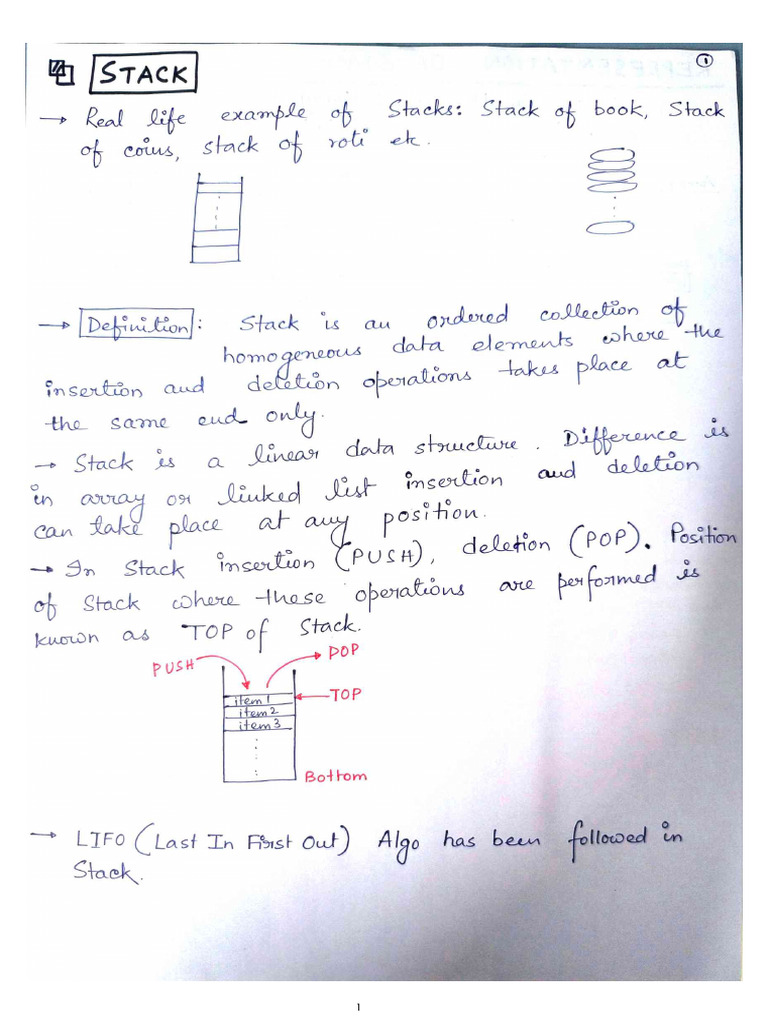 ①
STACK
→ Real life example of Stacks: Stack of book, Stack
of coins, stack of roti etc.
→ Definition: Stack is an ordered collection of
homogeneous data elements where the
insertion and deletion operations takes place at
the same end only.
→ Stack is a linear data structure. Difference is
in array or linked list insertion and deletion
can take place at any position.
→ In Stack insertion (PUSH), deletion (POP). Position
of Stack where these operations are performed is
known as TOP of Stack.
PUSH POP
item 1 TOP
item 2
item 3
Bottom
→ LIFO (Last In First Out) Algo has been followed in
Stack.
1